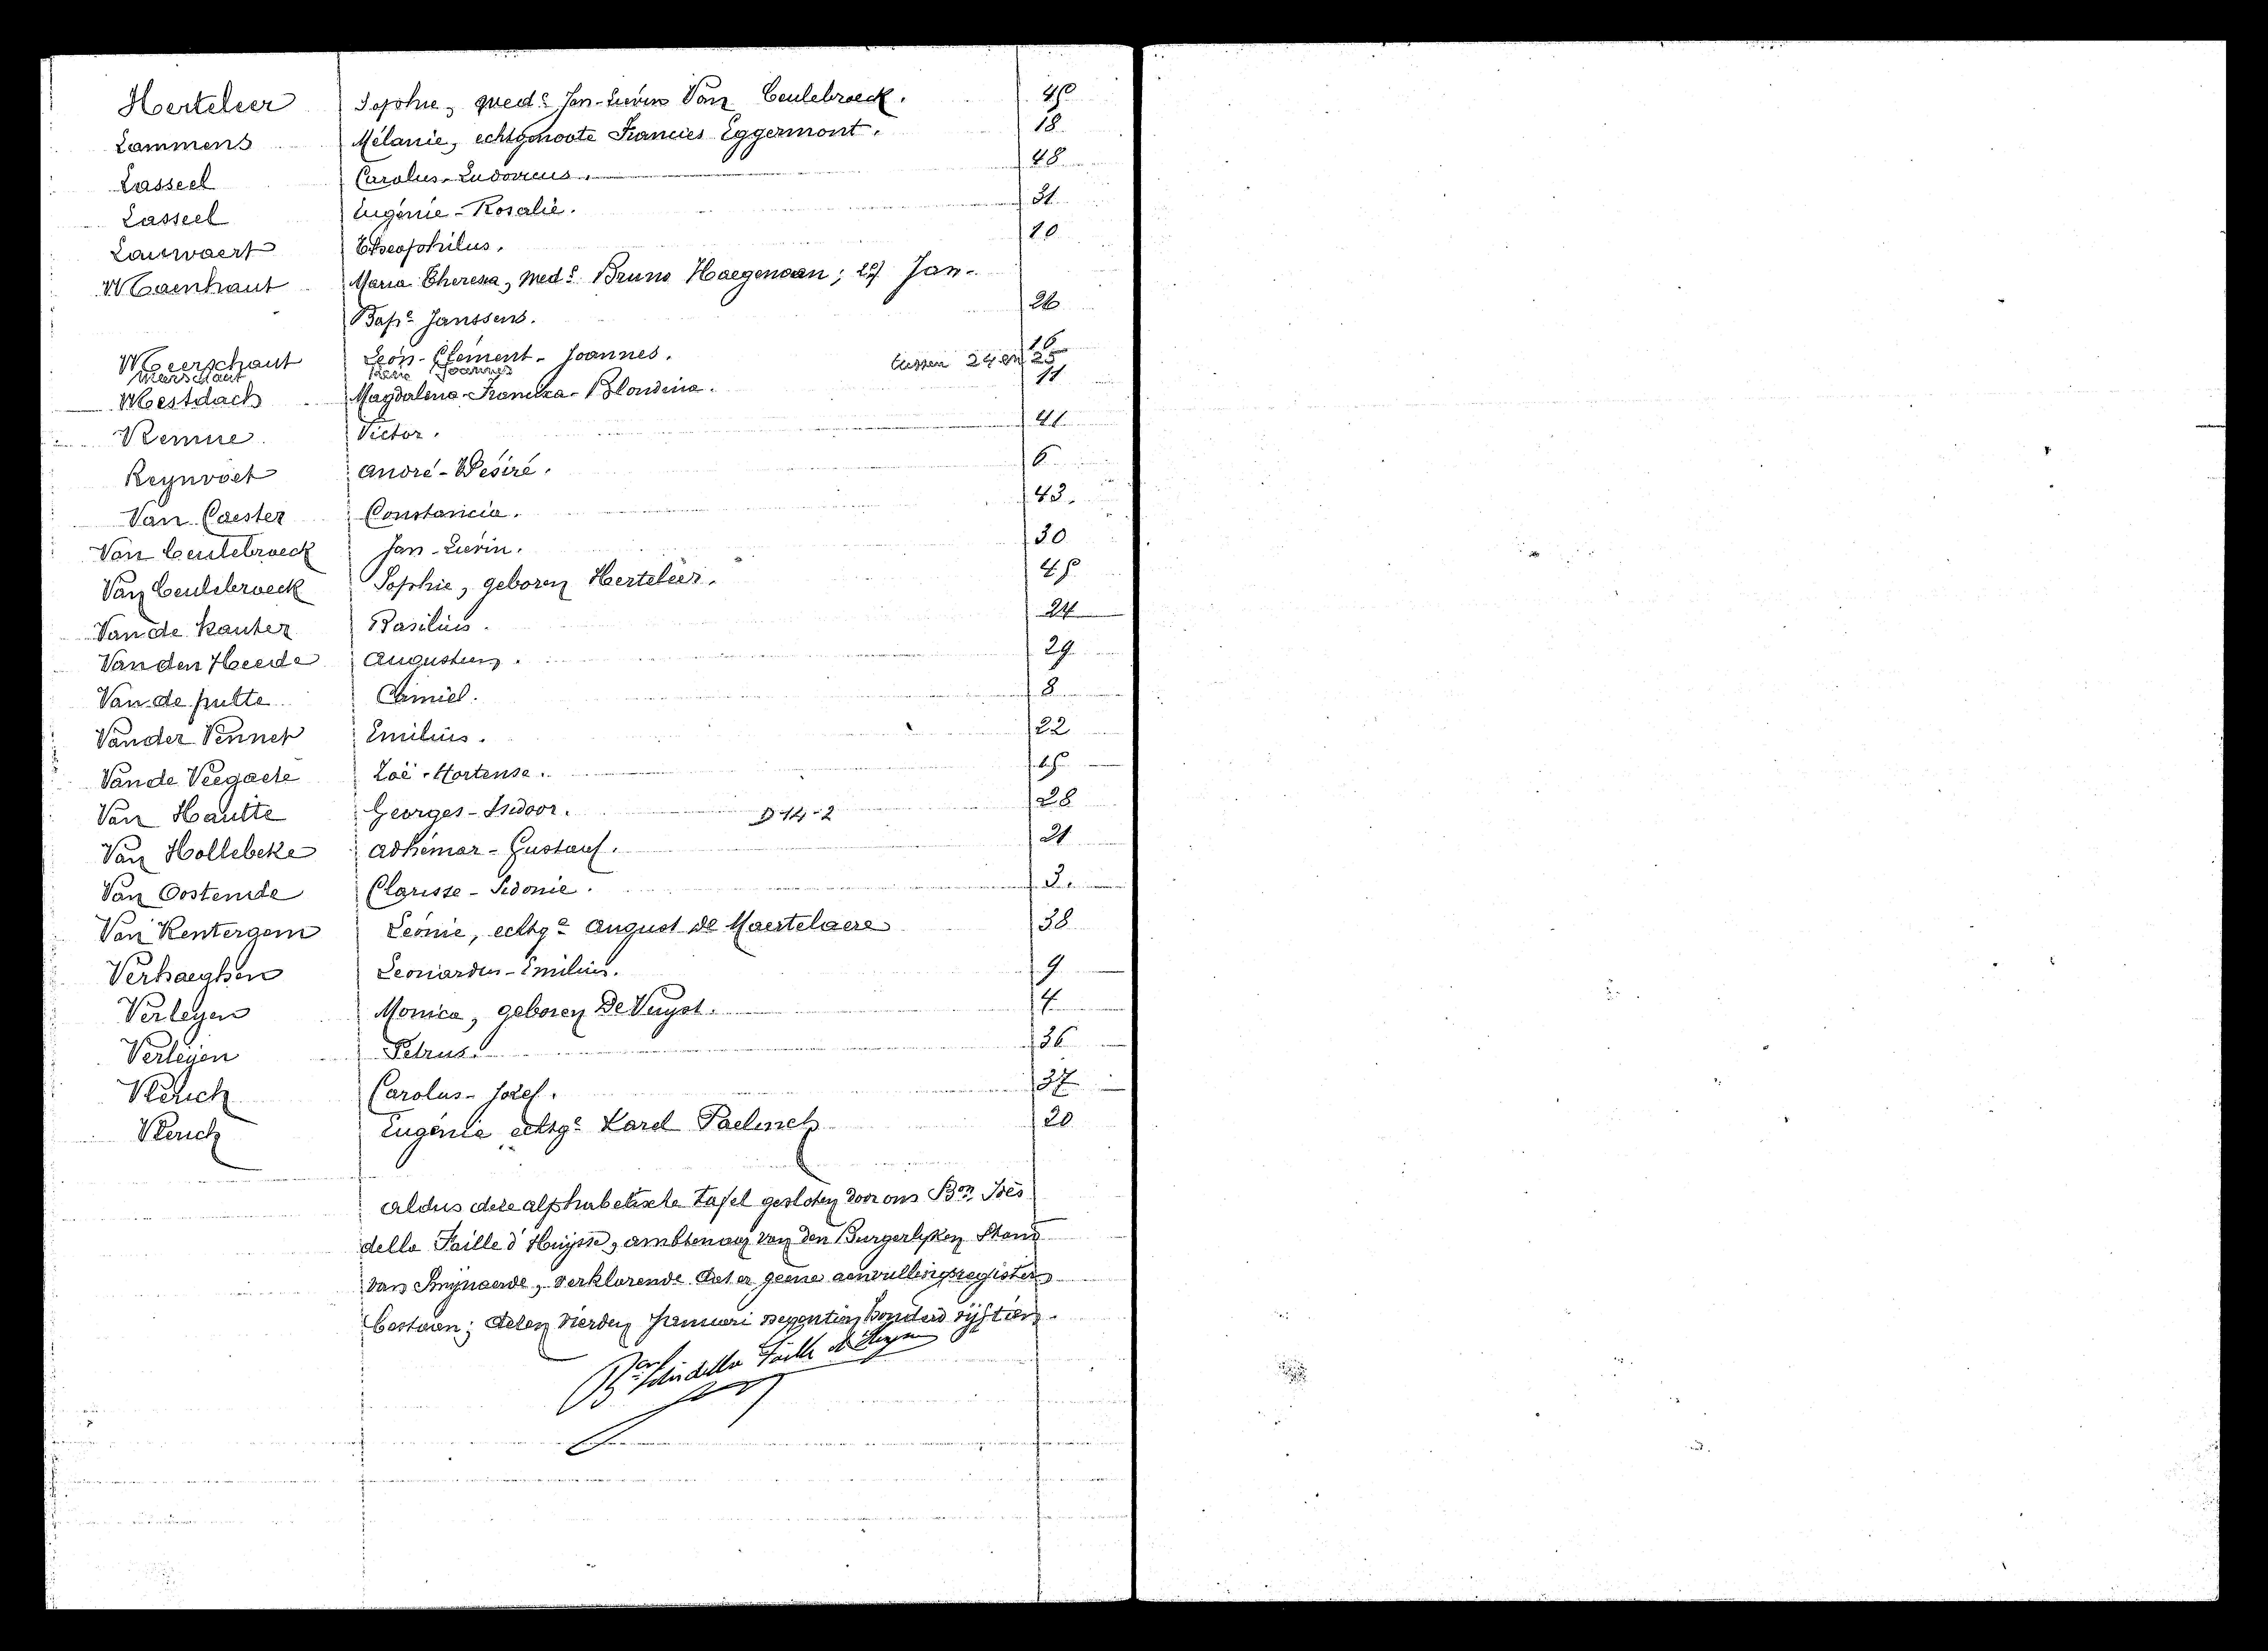 Herteleer Sophie, wed.e Jan-Lievin Van Ceulebroeck. 45
Lammens Mélanie, echtgenoote Francies Eggermont. 18
Lasseel Carolus-Ludovicus. 48
Lasseel Eugénie-Rosalie. 31
Lauwaert Theophilus. 10
Maenhaut Maria Theresia, wed.e Bruno Haegeman; 2.e) Jan-
Bap.te Janssens. 26
Meerschaut Leon-Clement-Joannes. 16
Meerschaut Joannes tussen 24 en 25
Mestdach Magdalena-Francisca-Blondina. 11
Remue Victor. 41
Reynvoet André-Désiré. 6
Van Caester Constancia. 43.
Van Ceulebroeck Jan-Lievin. 30
Van Ceulebroeck Sophie, geboren Herteleer. 45
Van de Kauter Basilius. 24
Van den Heede Augustien. 29
Van de putte Camiel. 8
Vander Vennet Emilius. 22
Van de Veegaete Zoë-Hortense. 15
Van Hautte Georges-Isidoor. D 14-2 28
Van Hollebeke Adhémar-Gustaaf. 21
Van Oostende Clarisse-Sidonie. 3.
Van Rentergem Léonie, echtg.e August de Maertelaere 38
Verhaeghen Leonardus-Emilius. 9
Verleyen Monica, geboren De Vuyst. 4
Verleyen Petrus. 36
Vlerick Carolus-Jozef. 37
Vlerick Eugénie echtg.e Karel Paelinck 20
Aldus deze alphabetische tafel gesloten door ons B.on Irès
della Faille d'Huysse, ambtenaar van den Burgerlyken Stand
van Swynaerde, verklarende dat er geene aenvullingsregisters
bestaen; dezen vierden Januari negentien honderd vijftien.
B.on della Faille d'Huysse